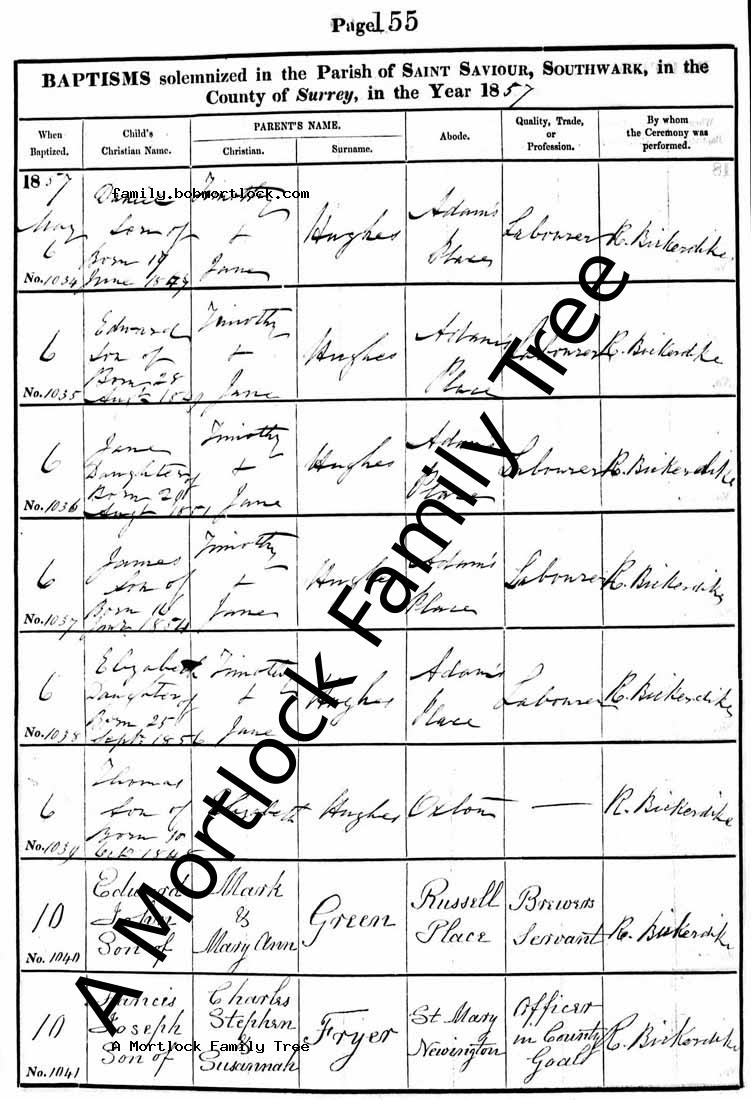 Page 155
BAPTISMS solemnized in the Parish of SAINT SAVIOUR, SOUTHWARK, in the
County of Surrey, in the Year 1857
When Baptized.
Child's Christian Name.
PARENT'S NAME.
Christian.
Surname.
Abode.
Quality, Trade, or Profession.
By whom the Ceremony was performed.
1857
May
6
No. 1034
Daniel
Son of
Born 19
June
Timothy
+
Jane
Hughes
Adam's
Place
Labourer
R. Bickerdike
family.bobmortlock.com
6
No. 1035
Edward
Son of
Born 28
Augt
Timothy
+
Jane
Hughes
Adam's
Place
Labourer
R. Bickerdike
6
No. 1036
Jane
Daughter of
Born 28
Augt
Timothy
+
Jane
Hughes
Adam's
Place
Labourer
R. Bickerdike
6
No. 1037
James
Son of
Born 10
1854
Timothy
+
Jane
Hughes
Adam's
Place
Labourer
R. Bickerdike
6
No. 1038
Elizabeth
Daughter of
Born 25
Septr 1856
Timothy
+
Jane
Hughes
Adam's
Place
Labourer
R. Bickerdike
6
No. 1039
Thomas
Son of
Born 30
Octr
Elizabeth
Hughes
—
R. Bickerdike
10
No. 1040
Edward
John
Son of
Mark
&
Mary Ann
Green
Russell
Place
Brewers
Servant
R. Bickerdike
10
No. 1041
Francis
Joseph
Son of
Charles
Stephen
&
Susannah
Fryer
St Mary
Newington
Officer
in County
Goal
R. Bickerdike
A Mortlock Family Tree
A Mortlock Family Tree